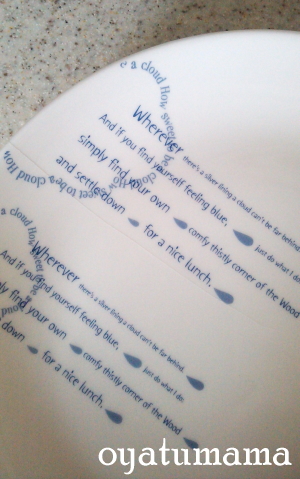 e a cloud How sweet to be a cloud How sweet to be a cloud How
Wherever there's a silver lining a cloud can't be far behind.
And if you find yourself feeling blue, just do what I do
simply find your own comfy thistly corner of the Wood
and settle down for a nice lunch.
a cloud How sweet to be a cloud
Wherever there's a silver lining a cloud can't be far behind.
And if you find yourself feeling blue, just do what I do
ly find your own comfy thistly corner of the Wood
down for a nice lunch.
oyatumama